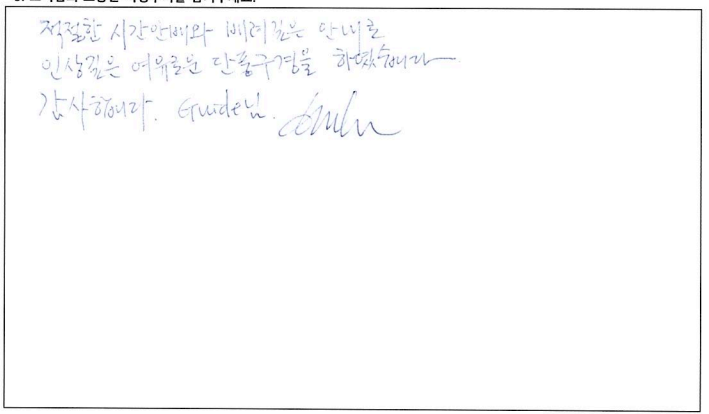 적절한 시간안배와 배려깊은 안내로
인상깊은 여유로운 단풍구경을 하였습니다
감사합니다. Guide님.